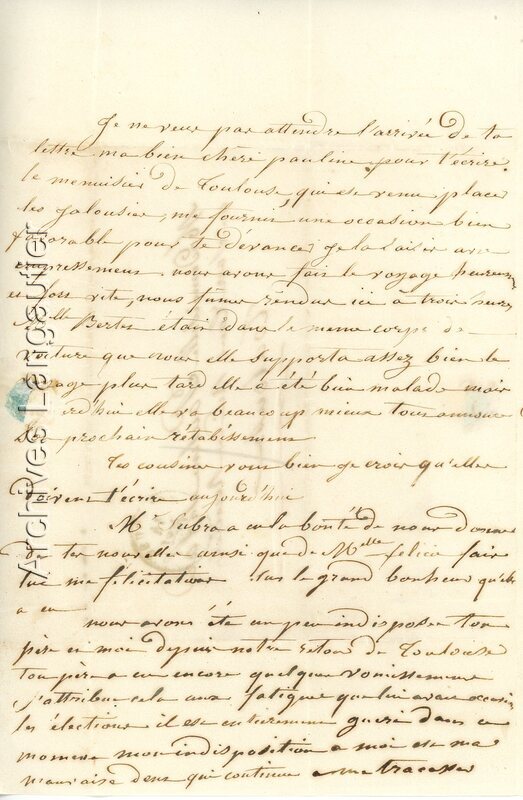 Je ne veux pas attendre l'arrivée de ta
lettre ma bien chère pauline pour t'écrire.
le menuisier de Toulouse qui est venu placer
les jalousies, me fournit une occasion bien
favorable pour te dévancer je la saisis avec
empressement. nous avons fait le voyage heureux
et fort vite, nous fumes rendus ici à trois heures
Melle Bertes était dans le meme corps de
voiture que nous elle supporta assez bien le
voyage plus tard elle a été bien malade mais
elle va beaucoup mieux tout annonce
prochain rétabissement
tes cousines vous bien je crois qu'elles
doivent t'écrire aujourd'hui
Mr Subra a eu la bonté de nous donner
de tes nouvelles ainsi que de Melle felicie fais
lui mes félicitations sur le grand bonheur qu'elle
a eu
nous avons été un peu indisposés ton
père et moi depuis notre retour de Toulouse
ton père a eu encore quelques vomissements
j'attribue cela aux fatigues que lui avai occasio
les élections il est entierement guéri dans ce
moment mon indisposition a moi est ma
mauvaise dent qui continue a me tracasser
Archives Lengaulier